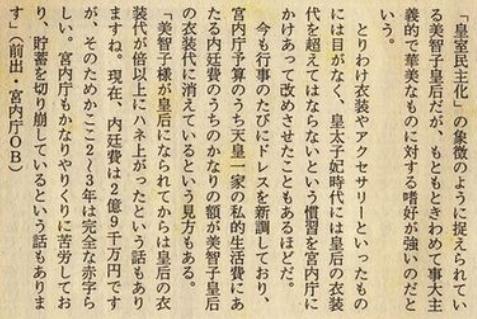 「皇室民主化」の象徴のように捉えられてい
る美智子皇后だが、もともときわめて事大主
義的で華美なものに対する嗜好が強いのだと
いう。
とりわけ衣装やアクセサリーといったもの
には目がなく、皇太子妃時代には皇后の衣装
代を超えてはならないという慣習を宮内庁に
かけあって改めさせたこともあるほどだ。
今も行事のたびにドレスを新調しており、
宮内庁予算のうち天皇一家の私的生活費にあ
たる内廷費のうちのかなりの額が美智子皇后
の衣装代に消えているという見方もある。
「美智子様が皇后になられてからは皇后の衣
装代が倍以上にハネ上がったという話もあり
ますね。現在、内廷費は2億9千万円です
が、そのためかここ2〜3年は完全な赤字ら
しい。宮内庁もかなりやりくりに苦労してお
り、貯蓄を切り崩しているという話もありま
す」（前出・宮内庁OB）